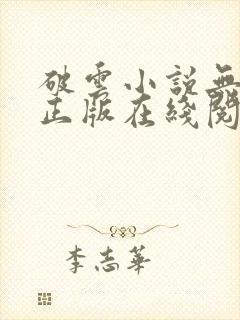 破云小説無
正版在綫閱
李志華